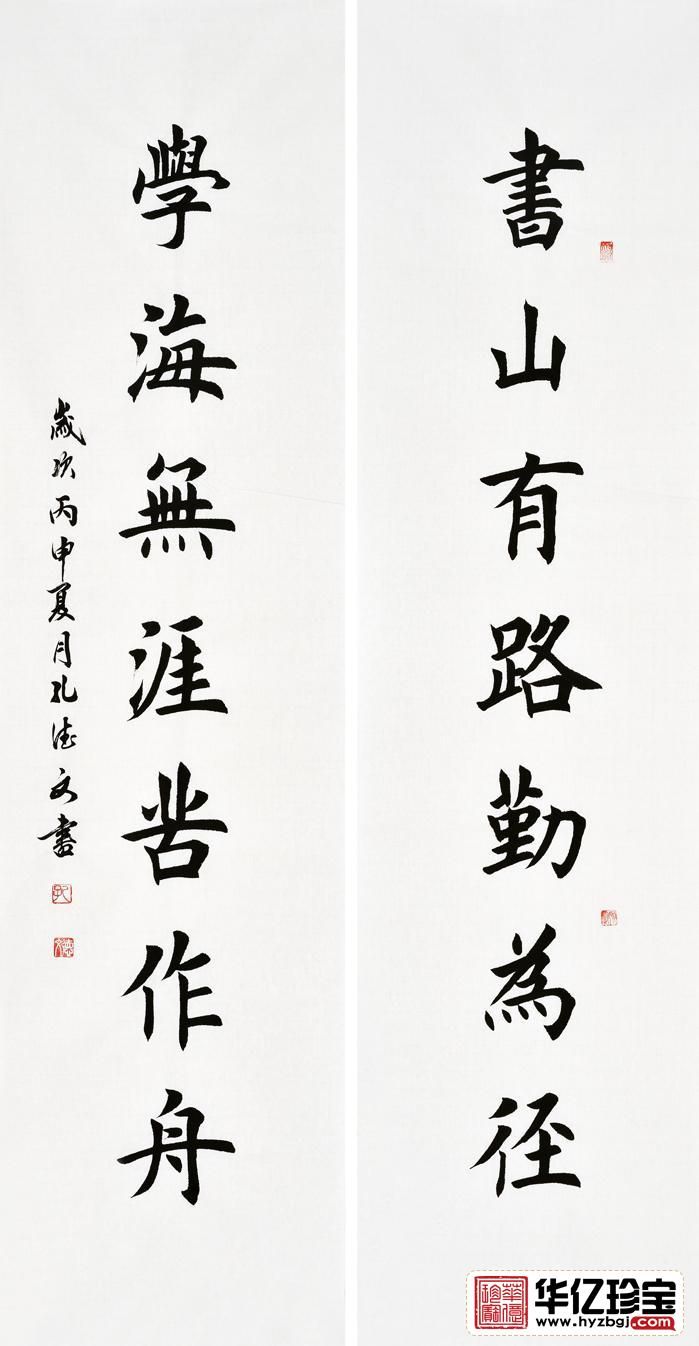 書山有路勤為徑
學海無涯苦作舟
歲次丙申夏月孔德文書
华亿珍宝
www.hyzbgj.com